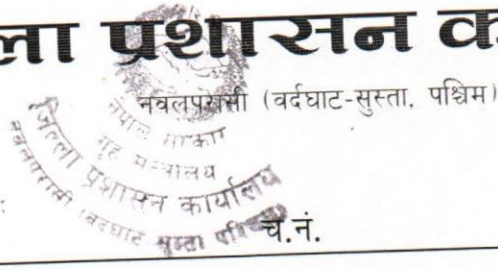 ला प्रशासन का
नवलपरासी (वर्दघाट-सुस्ता, पश्चिम)
नेपाल सरकार
गृह मन्त्रालय
जिल्ला प्रशासन कार्यालय
नवलपरासी (बर्दघाट सुस्ता पश्चिम)
:
च.नं.